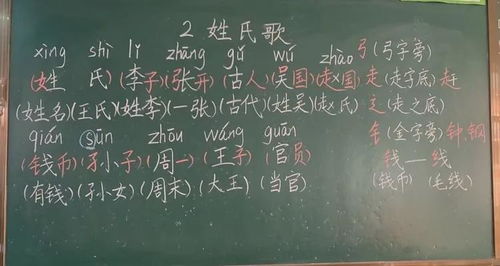 2 姓氏歌
xìng shì lǐ zhāng gǔ wú zhào 弓(弓字旁)
(姓 氏)(李子)(张开)(古人)(吴国)(赵国) 走(走字底) 赶
(女姓名)(王氏)(姓李)(一张)(古代)(姓吴)(赵氏) 辶(走之底)
qián sūn zhōu wáng guān 钅(金字旁) 钟、钢
(钱币)(孙小子)(周一)(王子)(官员) 钱—线
(有钱)(孙小女)(周末)(大王)(当官) (钱币)(毛线)